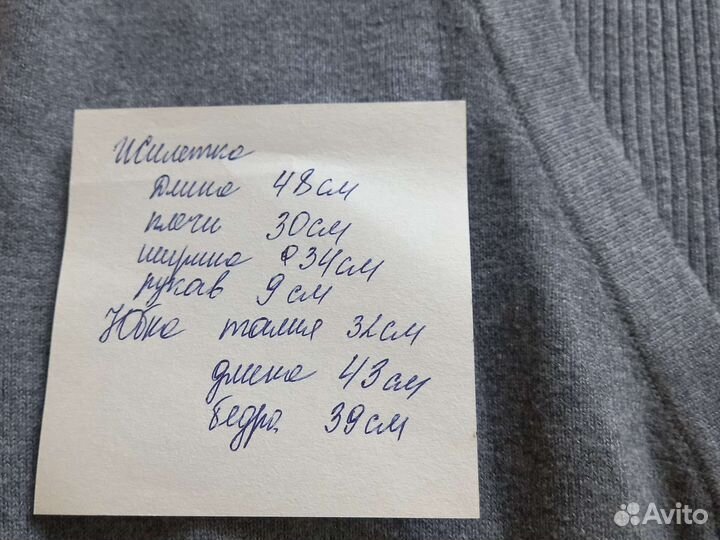 Жилетка
Длина 48см
плечи 30см
ширина 34см
рукав 9см
Юбка талия 32см
длина 43см
бедра 39см
Avito